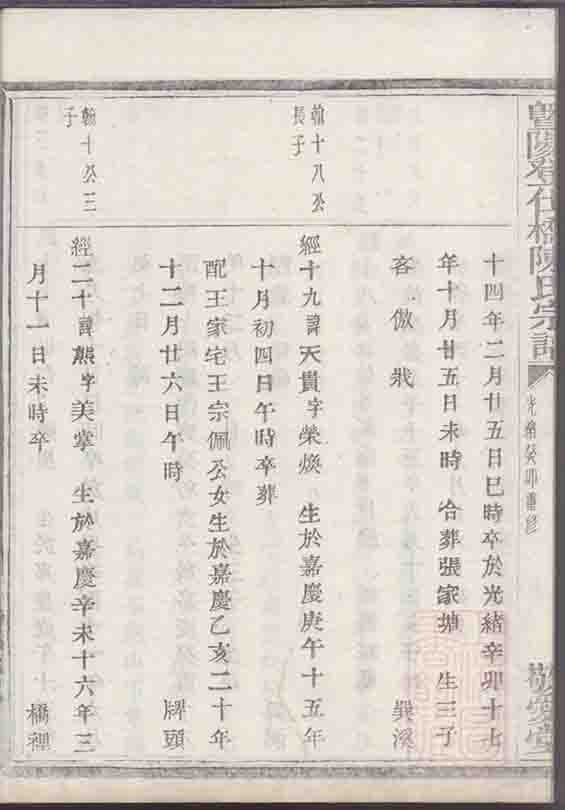 暨陽
橋陳氏宗譜
光緒癸卯重修
敬愛堂
十四年二月廿五日巳時卒於光緒辛卯十七
年十月廿五日未時 合葬張家塘 生三子
客 倣 栽 巽溪
翰十八公
長子
經十九諱天貴字榮煥 生於嘉慶庚午十五年
十月初四日午時卒葬
配王家宅王宗佩公女生於嘉慶乙亥二十年
十二月廿六日午時 牌頭
翰十公三
子
經二十諱熊字美掌 生於嘉慶辛未十六年三
月十一日未時卒 橋裡